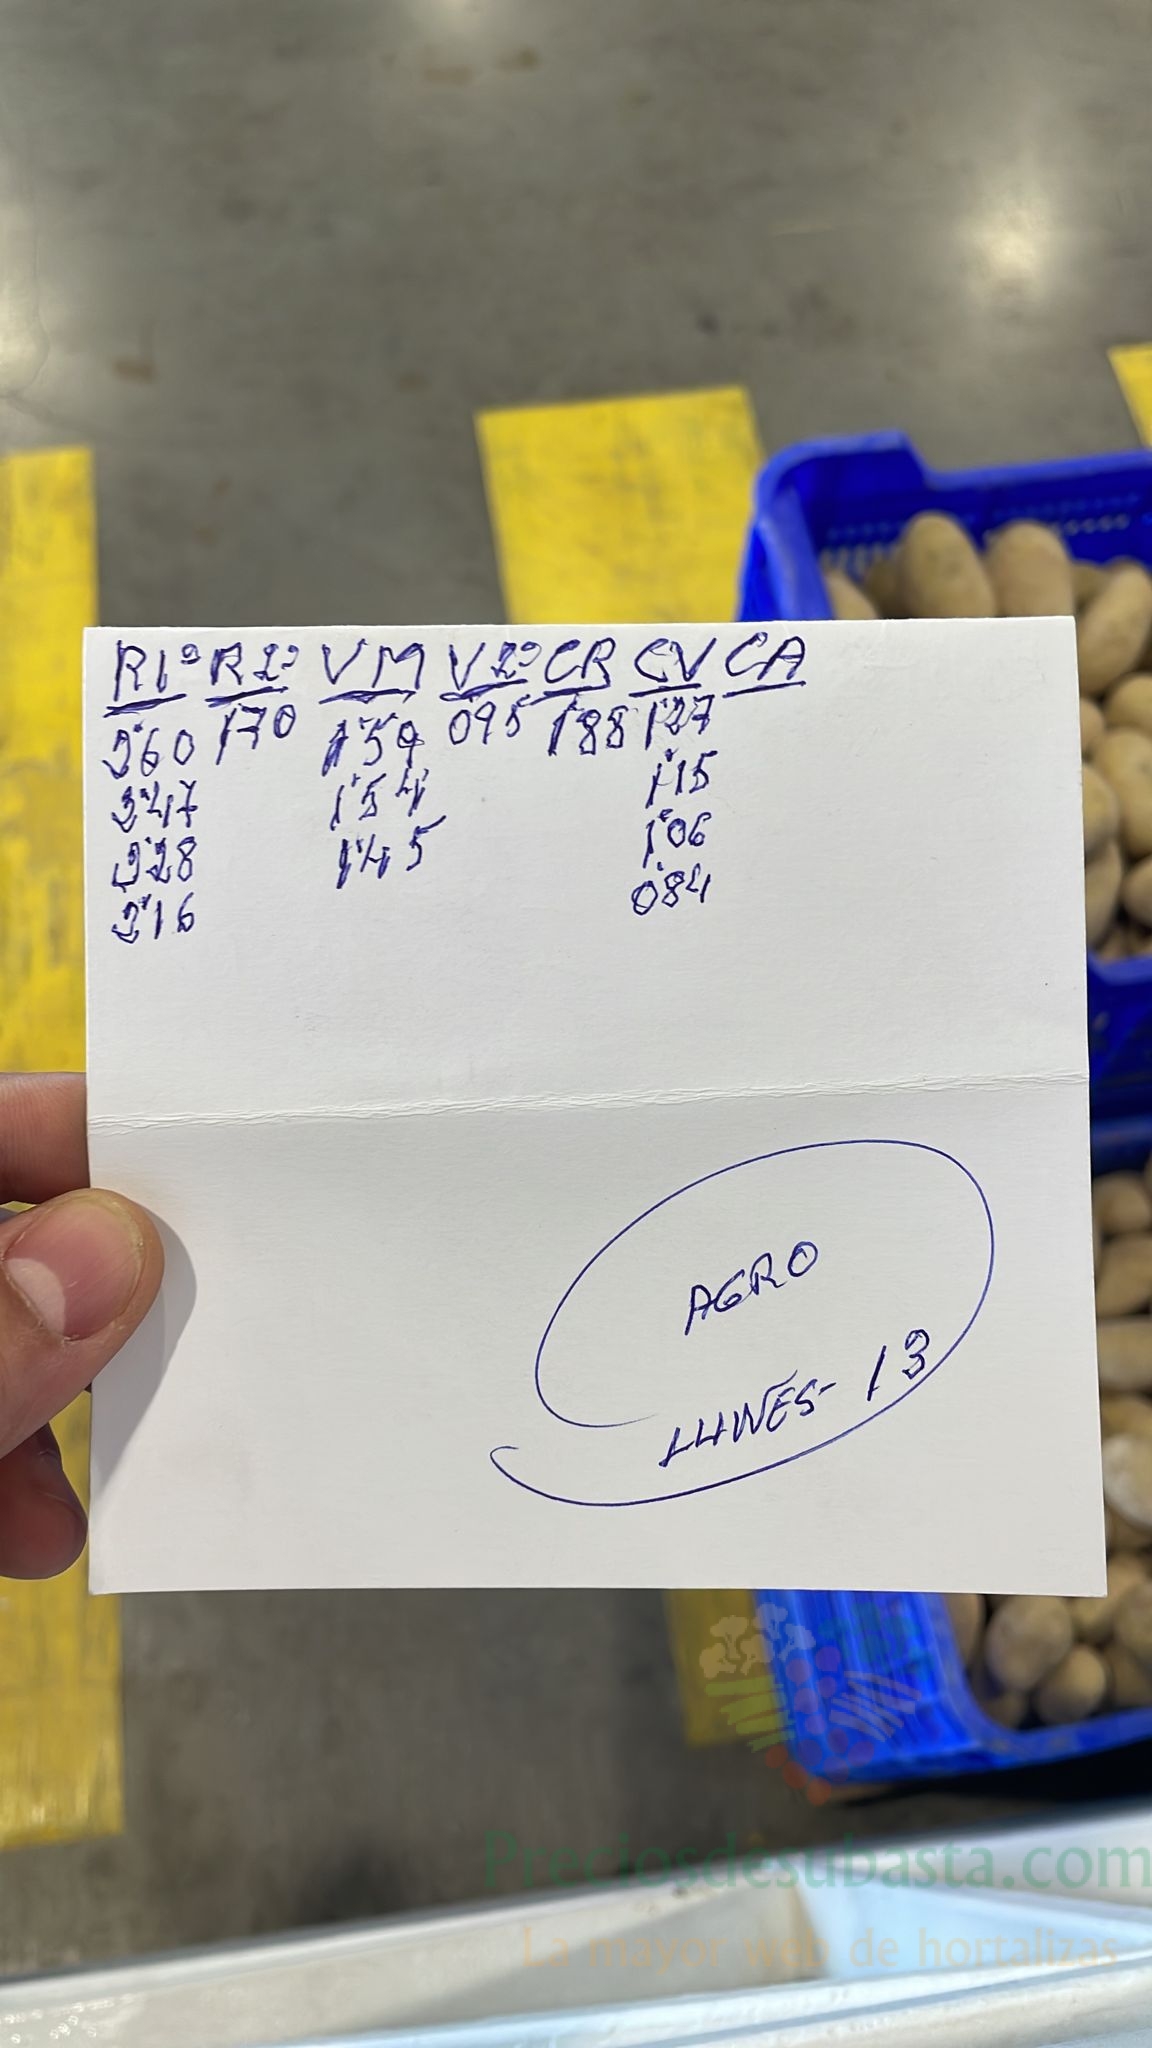 R1ª R2ª VM V2ª CR CV CA
2'60 170 1'59 095 188 1'27
2'47 1'54 1'15
2'28 1'45 1'06
2'16 0'84
AGRO
LUNES- 13
Preciosdesubasta.com
La mayor web de hortalizas